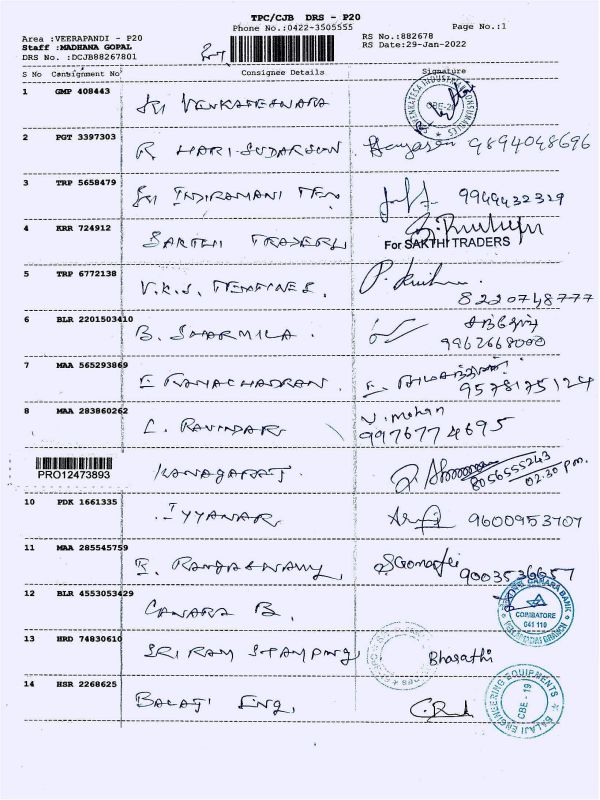 TPC/CJB DRS - P20
Phone No.:0422-3505555
Page No.:1
Area :VEERAPANDI - P20
Staff :MADHANA GOPAL
DRS No. :DCJB88267801
RS No.:882678
RS Date:29-Jan-2022
S No Consignment No Consignee Details Signature
1 GMP 408443 SRI VENKATESWARA
2 PGT 3397303 R HARI SUDARSON 9894048696
3 TRP 5658479 SRI INDIRAMANI TEX 9949432329
4 KRR 724912 SAKTHI TRADERS
For SAKTHI TRADERS
5 TRP 6772138 V.K.S. P. 8220748777
6 BLR 2201503410 B. SHARMILA. 9962668000
7 MAA 565293869 9578175124
8 MAA 283860262 C. RAVINDAR V. Mohan 9976774695
PRO12473893 KANAGARAJ. 8056555243
02.30 pm.
10 PDK 1661335 IYYANAR 9600953707
11 MAA 285545759 9003536657
12 BLR 4553053429 CANARA B.
CANARA BANK
COIMBATORE
641 110
13 HRD 74830610 SRI RAM STAMPING Bharathi
14 HSR 2268625 BALAJI ENG,
BALAJI ENGINEERING EQUIPMENTS
CBE - 19